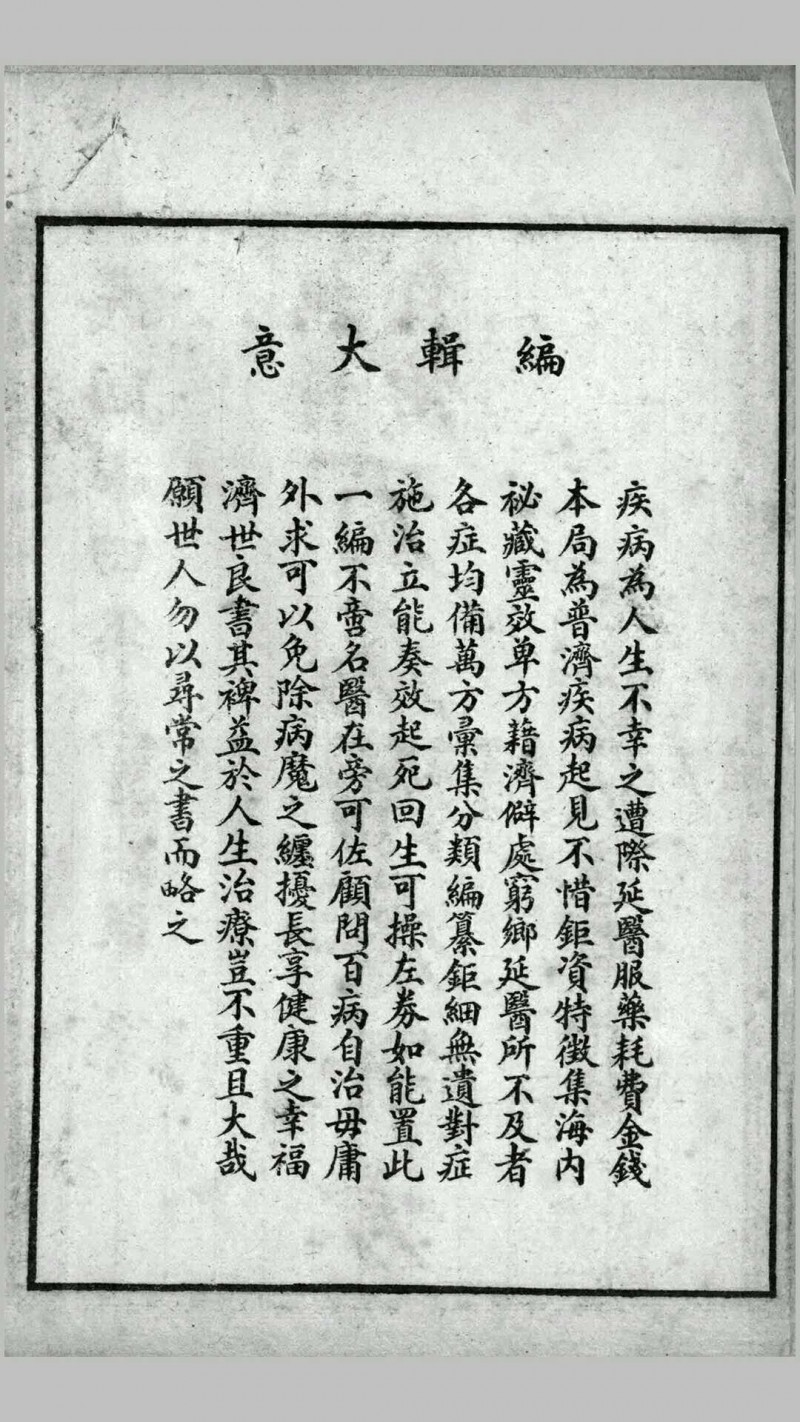 編輯大意
疾病為人生不幸之遭際延醫服藥耗費金錢
本局為普濟疾病起見不惜鉅資特徵集海內
祕藏靈效单方藉濟僻處窮鄉延醫所不及者
各症均備萬方彙集分類編纂鉅細無遺對症
施治立能奏效起死回生可操左券如能置此
一編不啻名醫在旁可佐顧問百病自治毋庸
外求可以免除病魔之纏擾長享健康之幸福
濟世良書其裨益於人生治療豈不重且大哉
願世人勿以尋常之書而略之